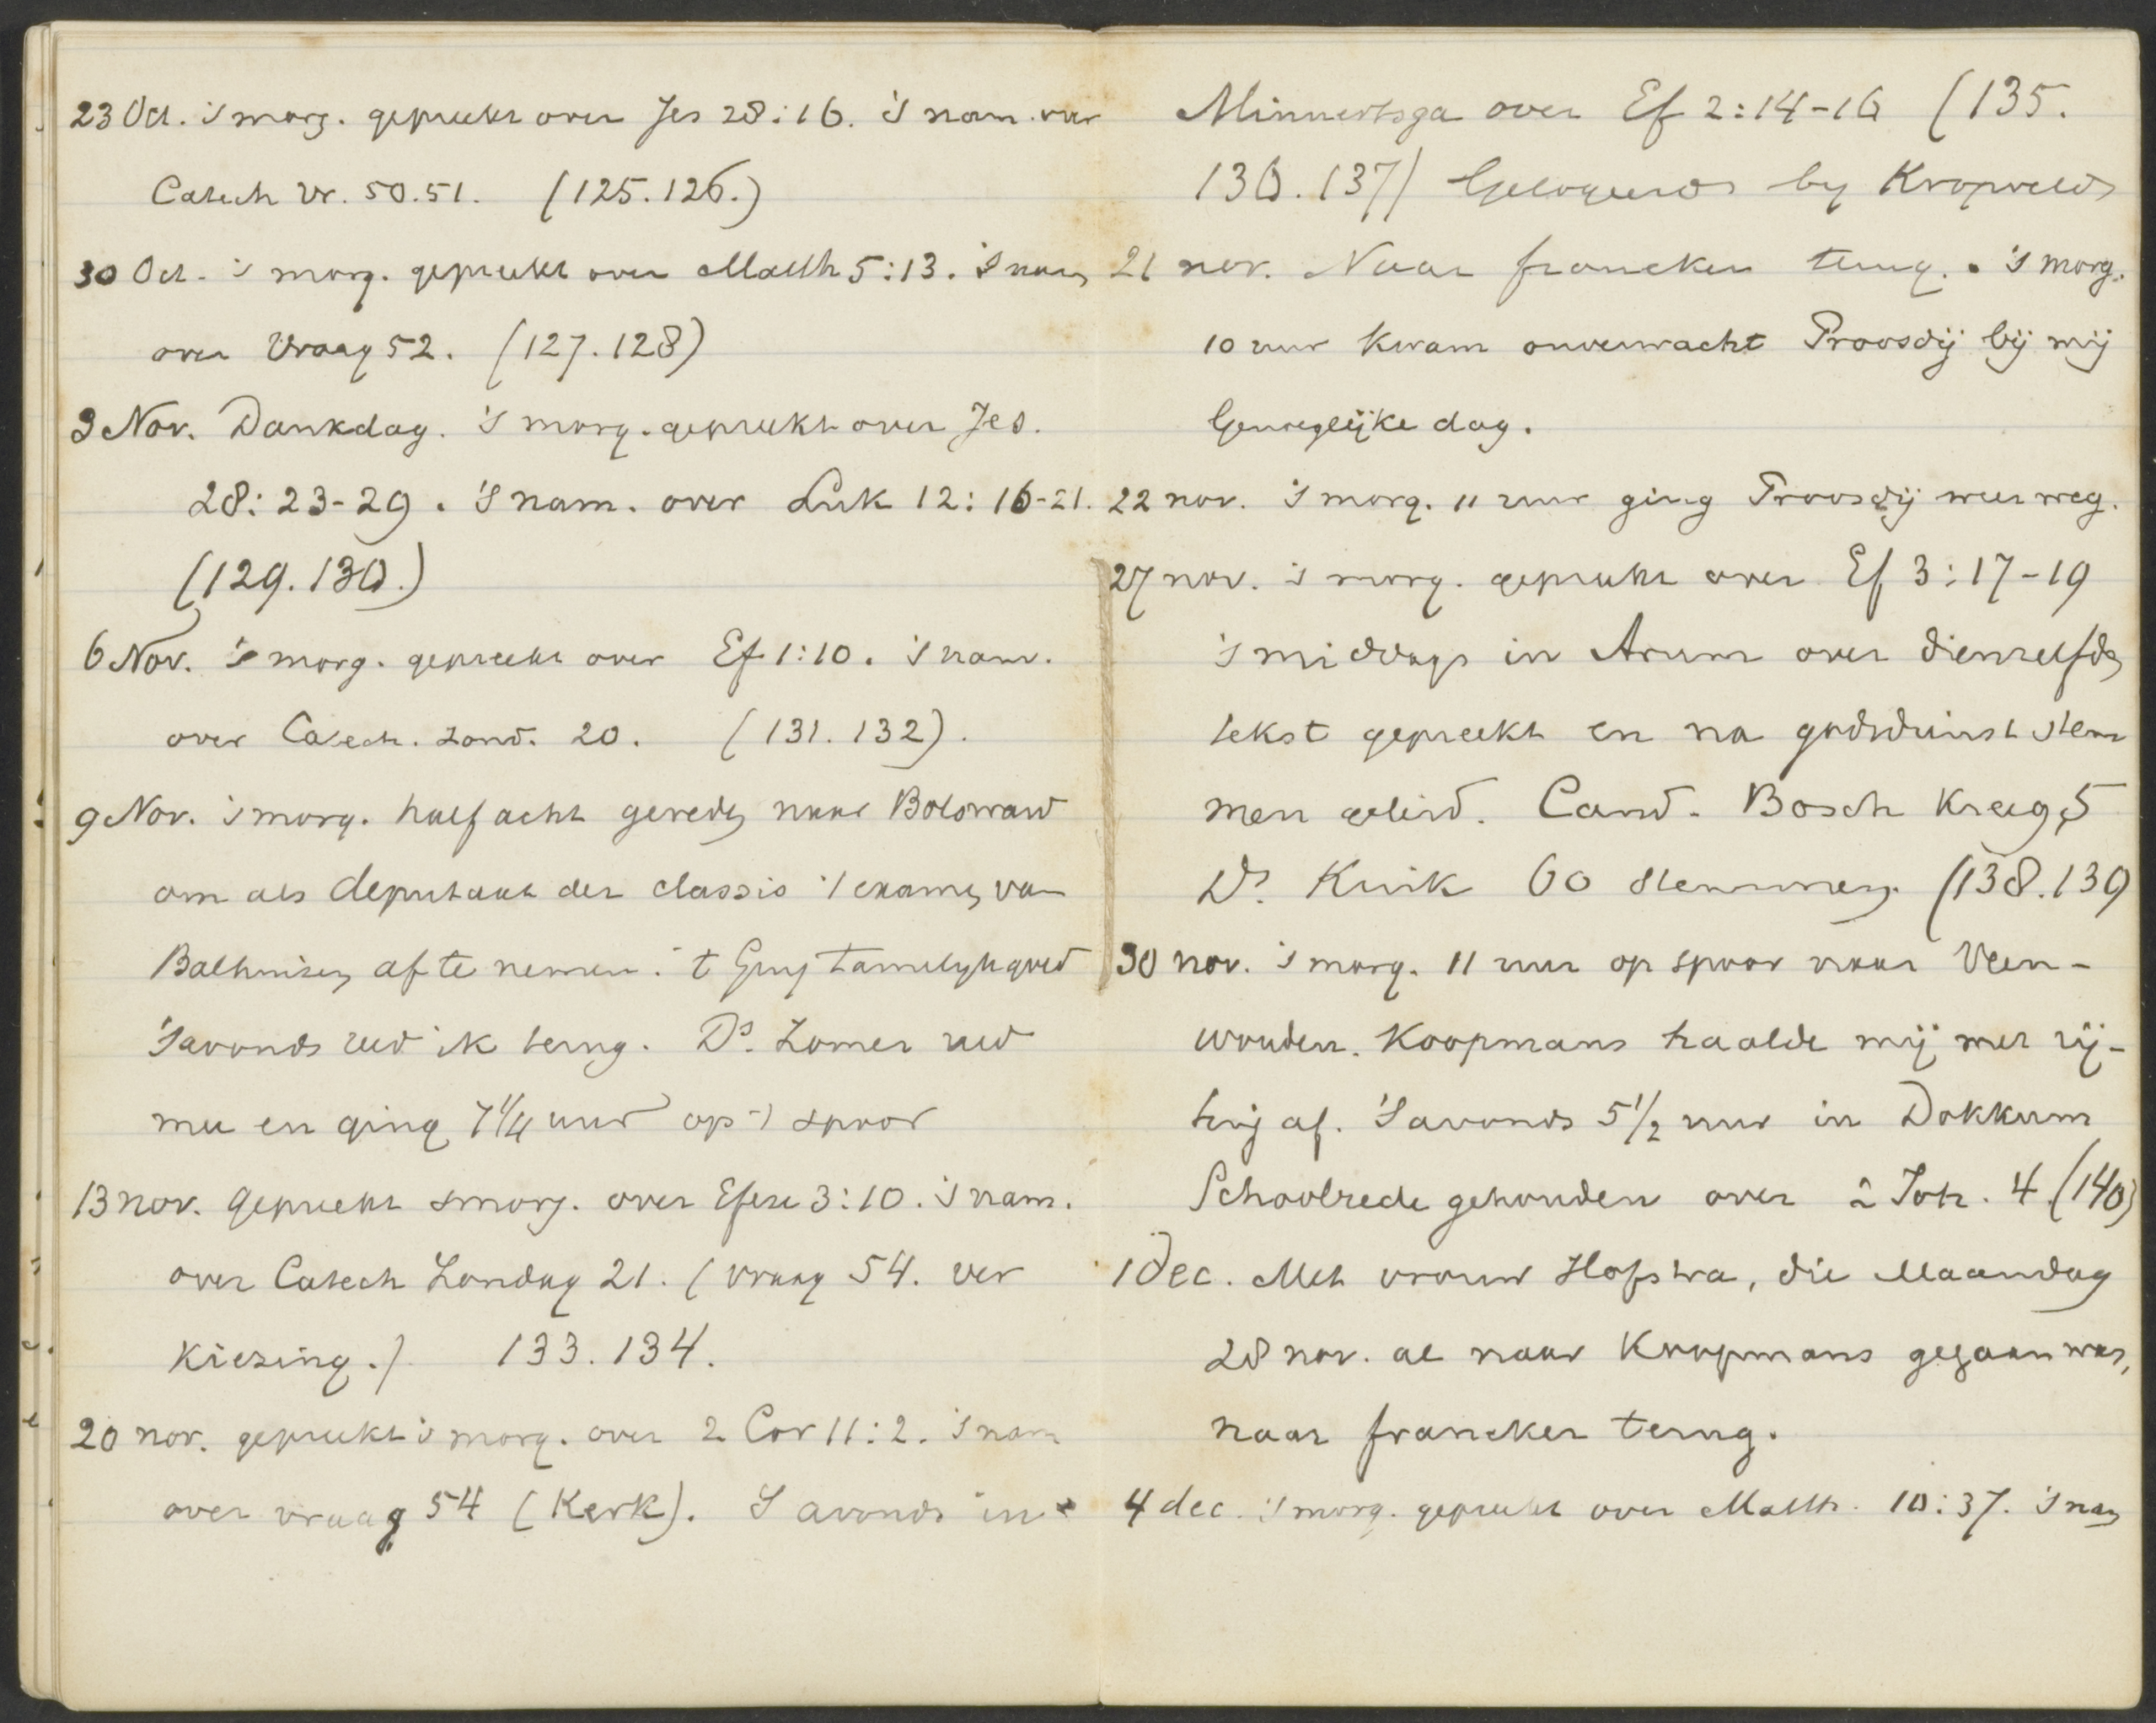 23 Oct. 's morg. gepreekt over Jes 28:16. 's nam. over
Catech vr. 50.51. (125.126.)
30 Oct. 's morg. gepreekt over Matth 5:13. 's nam
over Vraag 52. (127.128)
3 Nov. Dankdag. 's morg. gepreekt over Jes.
28: 23-29. 's nam. over Luk 12: 16-21.
(129.130.)
6 Nov. 's morg. gepreekt over Ef 1:10. 's nam.
over Catech. zond. 20. (131.132).
9 Nov. 's morg. half acht gereden naar Bolsward
om als deputaat der classis 't examen van
Balhuizen af te nemen. 't Ging tamelijk goed
's avonds reed ik terug. Ds. Zomer reed
mee en ging 7 1/4 uur op 't spoor
13 nov. gepreekt smorg. over Efeze 3:10. 's nam.
over Catech Zondag 21. (vraag 54. ver
kiezing.) 133.134.
20 nov. gepreekt 's morg. over 2 Cor 11:2. 's nam
over vraag 54 (Kerk). 's avonds in
Minnertsga over Ef 2:14-16 (135.
136.137) Gelogeerd by Kropveld
21 nov. Naar franeker terug. 's morg.
10 uur kwam onverwacht Proosdij bij mij
Genoeglijke dag.
22 nov. 's morg. 11 uur ging Proosdij weer weg.
27 nov. 's morg. gepreekt over Ef 3:17-19
's middags in Arum over dienzelfden
tekst gepreekt en na godsdienst stem
men geleid. Cand. Bosch kreeg 5
Ds. Kuik 60 stemmen. (138.139
30 nov. 's morg. 11 uur op spoor naar Veen-
wouden. Koopmans haalde mij met rij-
tuig af. 's avonds 5 1/2 uur in Dokkum
Schoolrede gehouden over 2 Joh. 4 (140)
1 Dec. Met vrouw Hofstra, die Maandag
28 nov. al naar Koopmans gegaan was,
naar franeker terug.
4 dec. 's morg. gepreekt over Matth. 10:37. 's nam